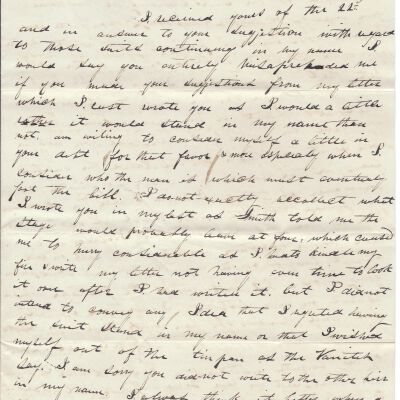 I received yours of the 22d
and in answer to your suggestion with regard
to those suits continuing in my name I
would say you entirely misapprehended me
if you made your suggestions from my letter
which I last wrote you as I would a little
it would stand in my name than
not. am willing to consider myself a little in
your debt for that favor & more especially when I
consider who the man is which must eventualy
foot the bill. I do not exactly accolect what
I wrote you in my last as Smith told me the
stage would probably leave at four, which caused
me to hurry considerable as I had to kindle my
fire & write my letter not having even time to look
it over after I had written it. but I did not
intend to convey any Idea that I regreted having
the suit stand in my name or that I wished
myself out of the tin pan as the
say. I am sorry you did not write to the other heirs
in my name. I always think it better when a